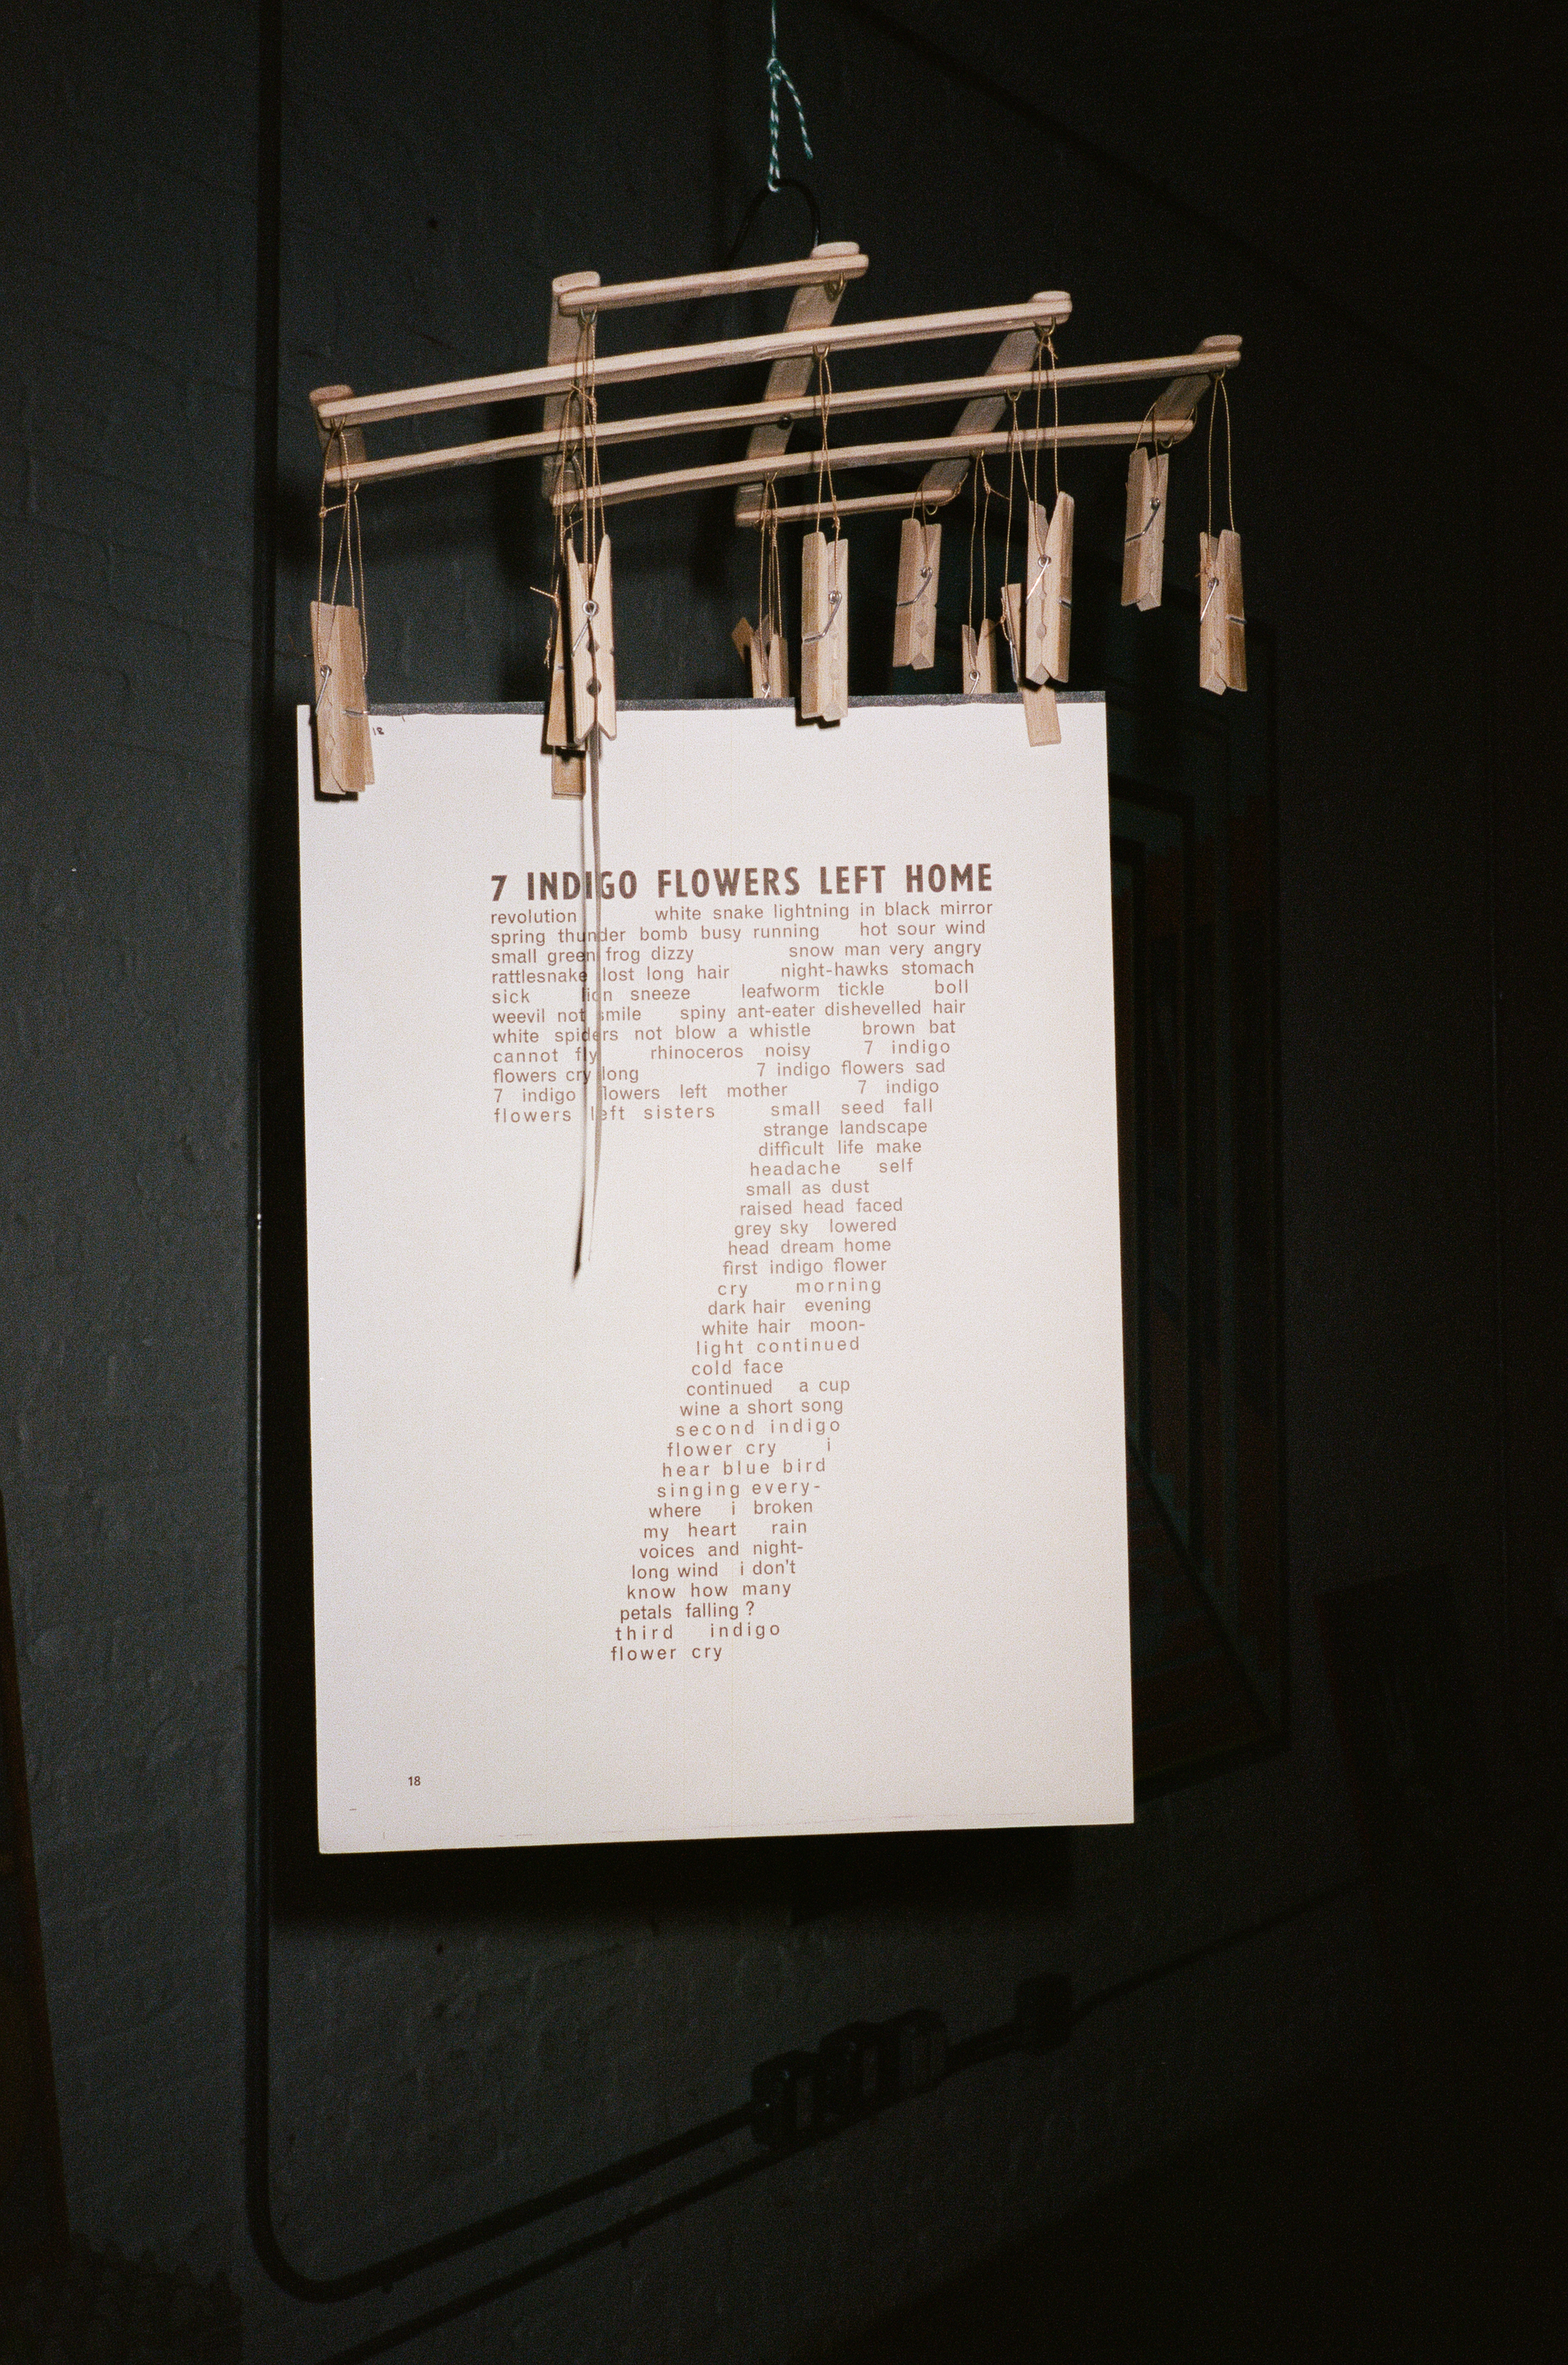 18
7 INDIGO FLOWERS LEFT HOME
revolution white snake lightning in black mirror
spring thunder bomb busy running hot sour wind
small green frog dizzy snow man very angry
rattlesnake lost long hair night-hawks stomach
sick lion sneeze leafworm tickle boll
weevil not smile spiny ant-eater dishevelled hair
white spiders not blow a whistle brown bat
cannot fly rhinoceros noisy 7 indigo
flowers cry long 7 indigo flowers sad
7 indigo flowers left mother 7 indigo
flowers left sisters small seed fall
strange landscape
difficult life make
headache self
small as dust
raised head faced
grey sky lowered
head dream home
first indigo flower
cry morning
dark hair evening
white hair moon-
light continued
cold face
continued a cup
wine a short song
second indigo
flower cry i
hear blue bird
singing every-
where i broken
my heart rain
voices and night-
long wind i don't
know how many
petals falling ?
third indigo
flower cry
18